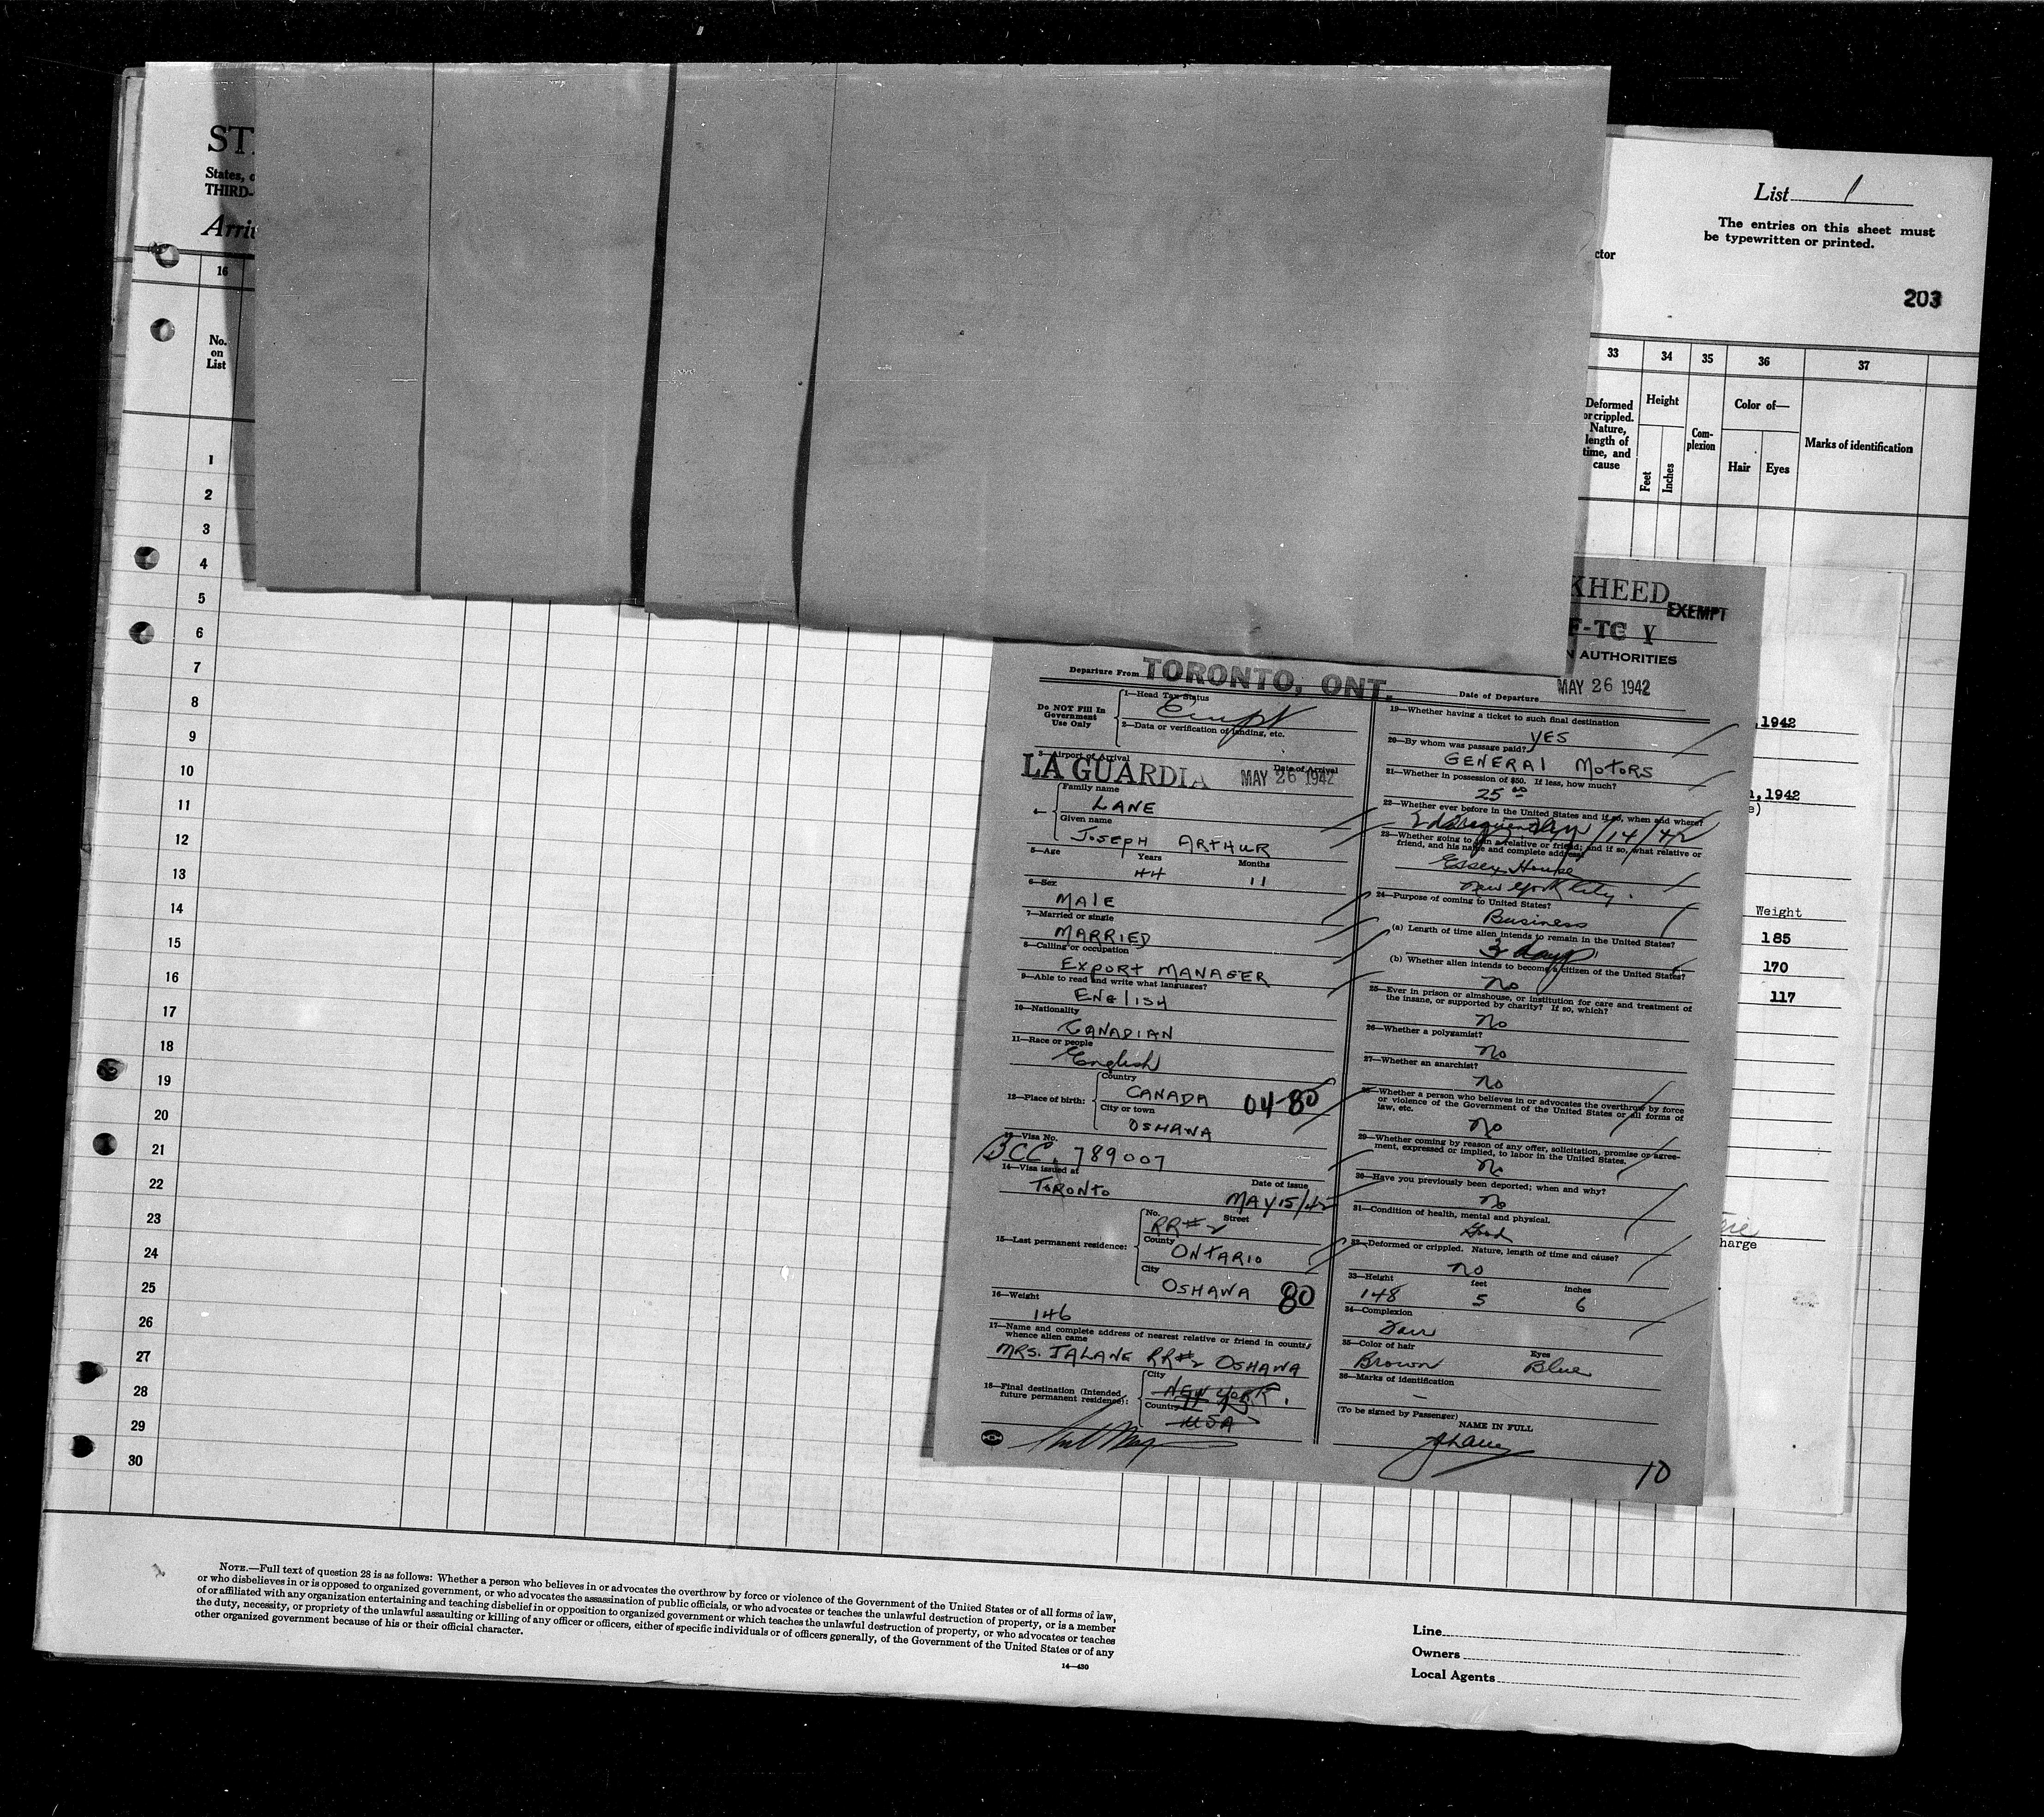 ST
States, o
THIRD-
Arri
List 1
The entries on this sheet must
be typewritten or printed.
ctor
203
16
No.
on
List
33
34
35
36
37
Deformed
or crippled.
Nature,
length of
time, and
cause
Height
Feet
Inches
Com-
plexion
Color of—
Hair
Eyes
Marks of identification
1
2
3
4
5
6
7
8
9
10
11
12
13
14
15
16
17
18
19
20
21
22
23
24
25
26
27
28
29
30
KHEED
EXEMPT
F-TC Y
N AUTHORITIES
Departure From TORONTO, ONT.
Date of Departure MAY 26 1942
Do NOT Fill In
Government
Use Only
1—Head Tax Status
Exempt
2—Data or verification of landing, etc.
3—Airport of Arrival
Date of Arrival
LA GUARDIA MAY 26 1942
Family name
LANE
Given name
JOSEPH ARTHUR
5—Age
Years
Months
44 11
6—Sex
MALE
7—Married or single
MARRIED
8—Calling or occupation
EXPORT MANAGER
9—Able to read and write what languages?
ENGLISH
10—Nationality
CANADIAN
11—Race or people
English
12—Place of birth:
Country
CANADA 04-80
City or town
OSHAWA
13—Visa No.
BCC. 789007
14—Visa issued at
Date of issue
TORONTO MAY 15/42
15—Last permanent residence:
No.
Street
RR#2
County
ONTARIO
City
OSHAWA 80
16—Weight
146
17—Name and complete address of nearest relative or friend in country
whence alien came
MRS. JALANE RR#2 OSHAWA
18—Final destination (Intended
future permanent residence):
City
NEW YORK.
Country
USA
19—Whether having a ticket to such final destination
YES
20—By whom was passage paid?
GENERAL MOTORS
21—Whether in possession of $50. If less, how much?
25 00
22—Whether ever before in the United States and if so, when and where?
/14/42
23—Whether going to join a relative or friend; and if so, what relative or
friend, and his name and complete address?
Essex House
New York City.
24—Purpose of coming to United States?
Business
(a) Length of time alien intends to remain in the United States?
3 days
(b) Whether alien intends to become a citizen of the United States?
no
25—Ever in prison or almshouse, or institution for care and treatment of
the insane, or supported by charity? If so, which?
no
26—Whether a polygamist?
no
27—Whether an anarchist?
no
28—Whether a person who believes in or advocates the overthrow by force
or violence of the Government of the United States or all forms of
law, etc.
no
29—Whether coming by reason of any offer, solicitation, promise or agree-
ment, expressed or implied, to labor in the United States.
no
30—Have you previously been deported; when and why?
no
31—Condition of health, mental and physical.
Good
32—Deformed or crippled. Nature, length of time and cause?
no
33—Height
feet
inches
148 5 6
34—Complexion
35—Color of hair
Eyes
Brown Blue
36—Marks of identification
—
(To be signed by Passenger)
NAME IN FULL
10
, 1942
, 1942
e)
Weight
185
170
117
harge
NOTE.—Full text of question 28 is as follows: Whether a person who believes in or advocates the overthrow by force or violence of the Government of the United States or of all forms of law,
or who disbelieves in or is opposed to organized government, or who advocates the assassination of public officials, or who advocates or teaches the unlawful destruction of property, or is a member
of or affiliated with any organization entertaining and teaching disbelief in or opposition to organized government or which teaches the unlawful destruction of property, or who advocates or teaches
the duty, necessity, or propriety of the unlawful assaulting or killing of any officer or officers, either of specific individuals or of officers generally, of the Government of the United States or of any
other organized government because of his or their official character.
14—430
Line
Owners
Local Agents